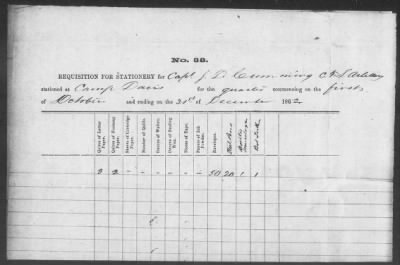 No. 38.
REQUISITION FOR STATIONERY for Capt J. D. Cumming C S Artillery
stationed at Camp Davis for the quarter commencing on the first
of October and ending on the 31st of December 1862
Quires of Letter Paper.
Quires of Foolscap Paper.
Quires of Envelope Paper.
Number of Quills.
Ounces of Wafers.
Ounces of Sealing Wax.
Pieces of Tape.
Papers of Ink Powder.
Envelopes.
Steel Pens
3 2 - - - - - - 50 20 1 1